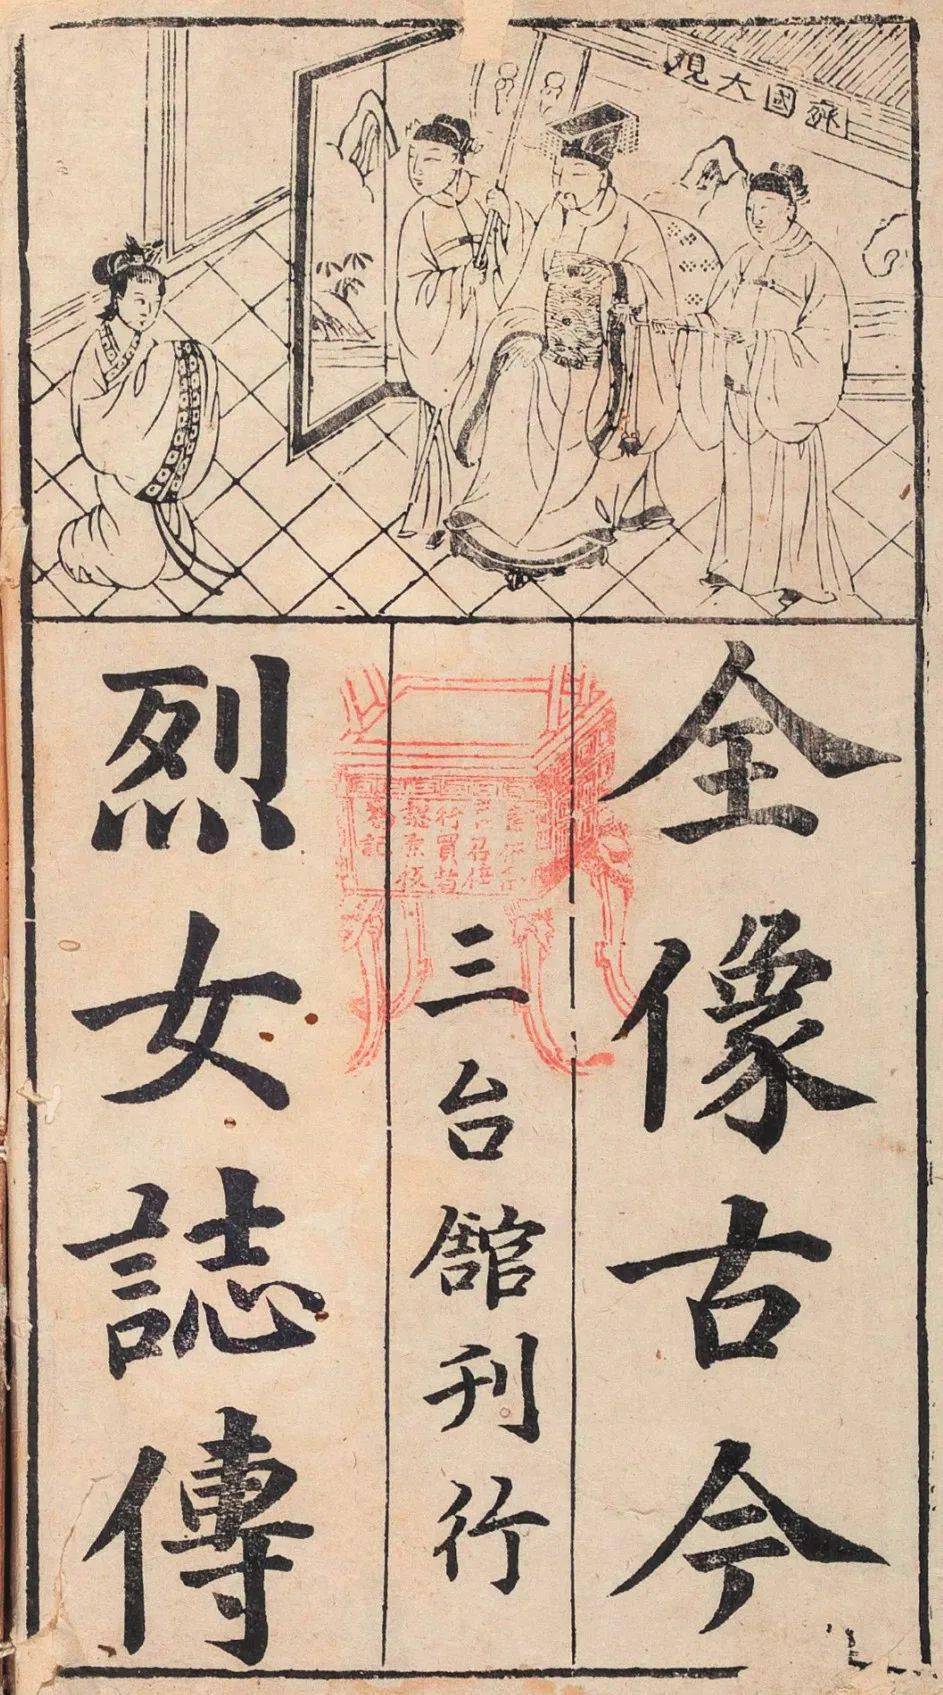 齊國大觀
全像古今
三台舘刊行
烈女誌傳